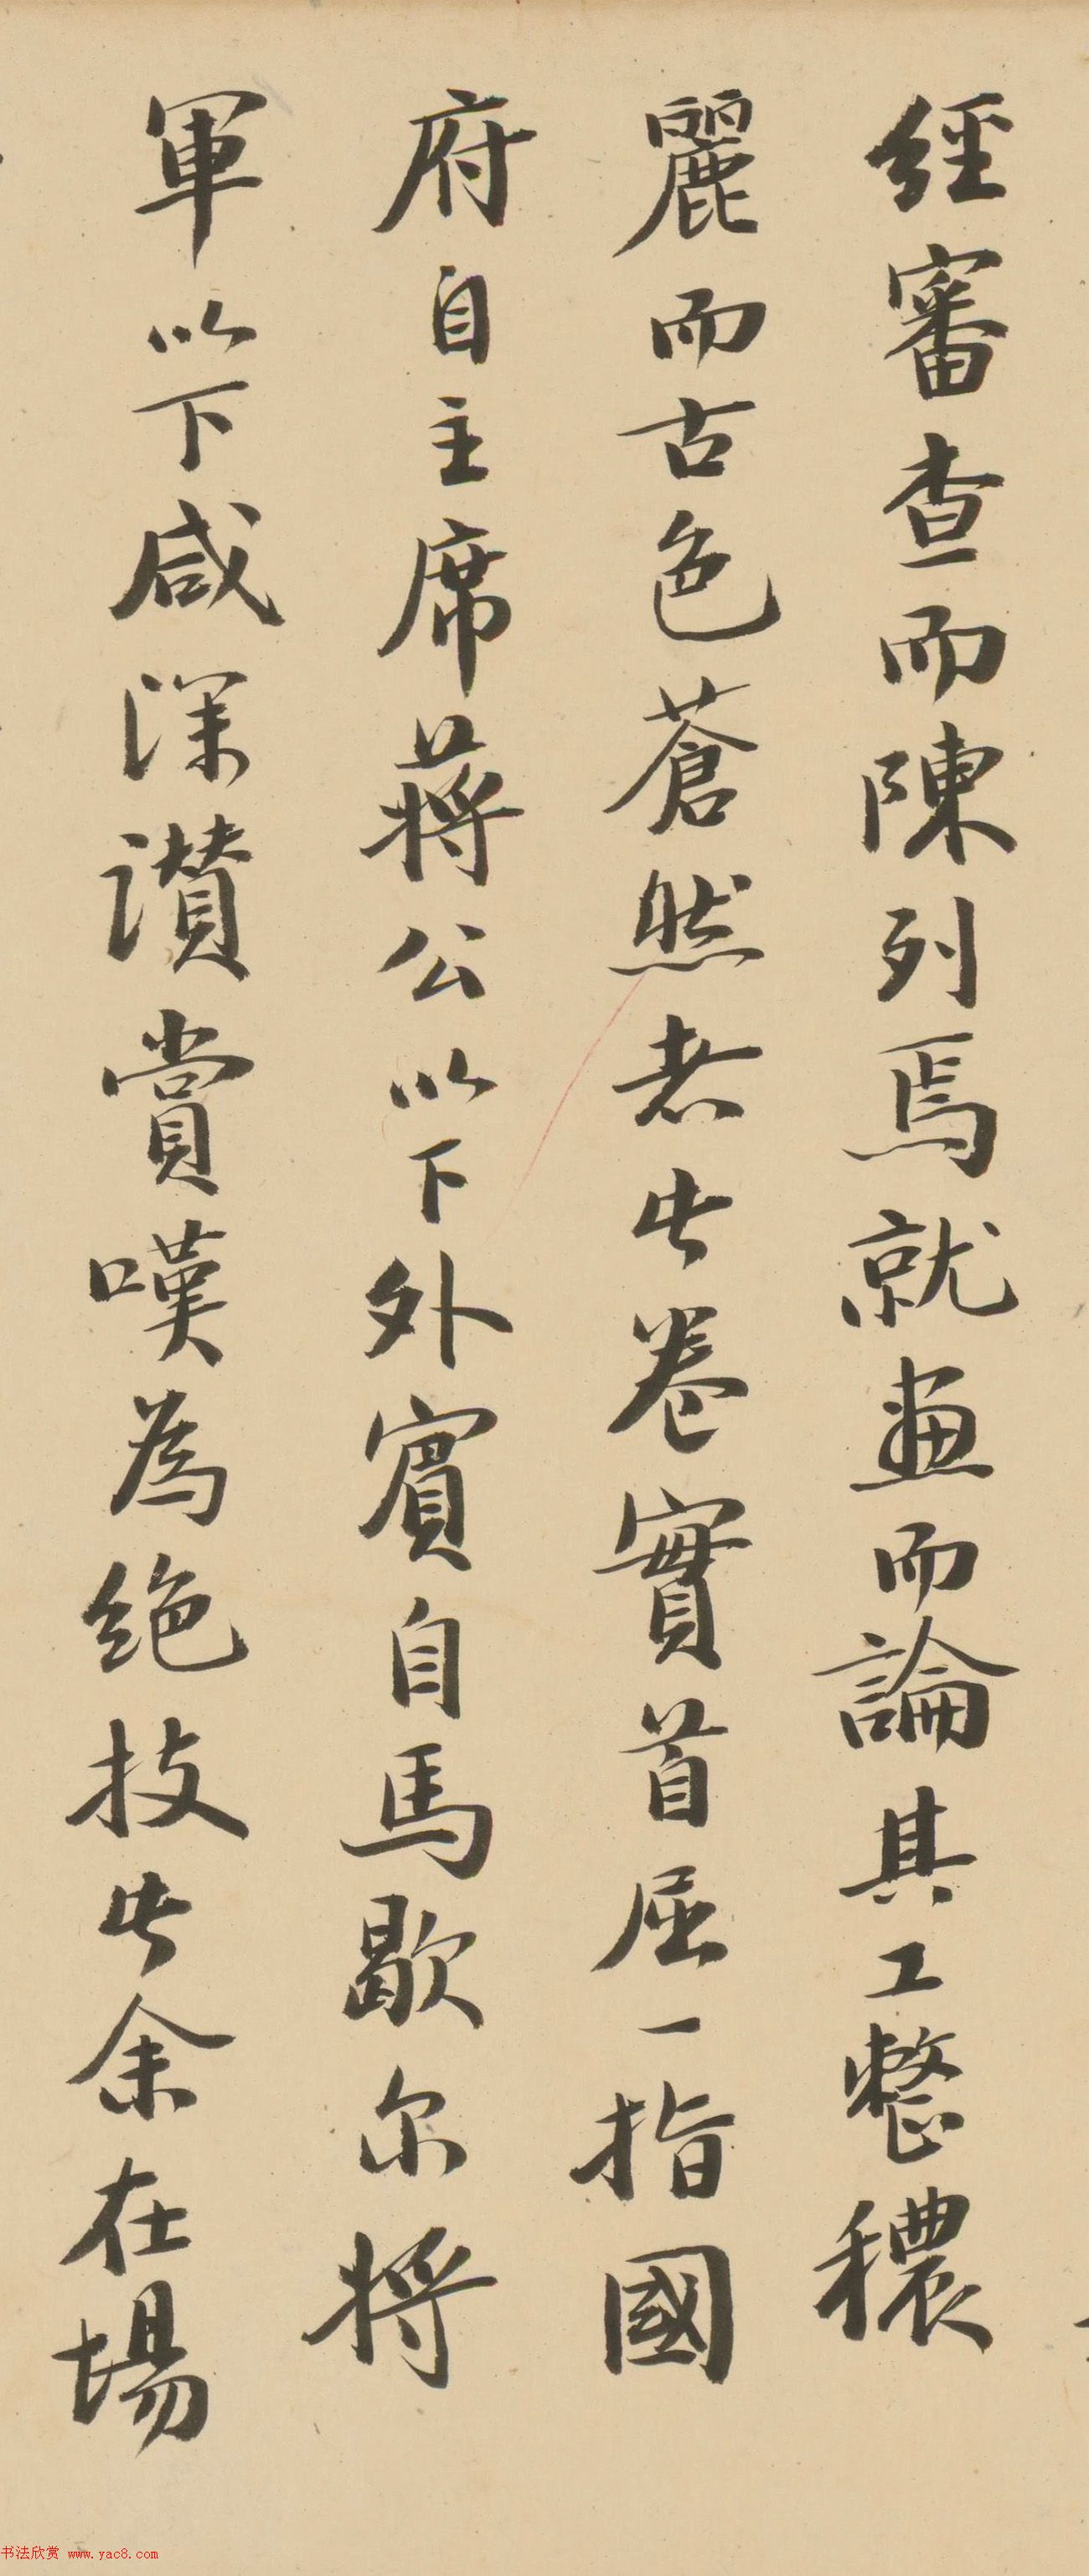 經審查而陳列焉就畫而論其工整穠
麗而古色蒼然者此卷實首屈一指國
府自主席蔣公以下外賓自馬歇尔將
軍以下咸深讃賞嘆為絕技此余在場
书法欣赏 www.yac8.com